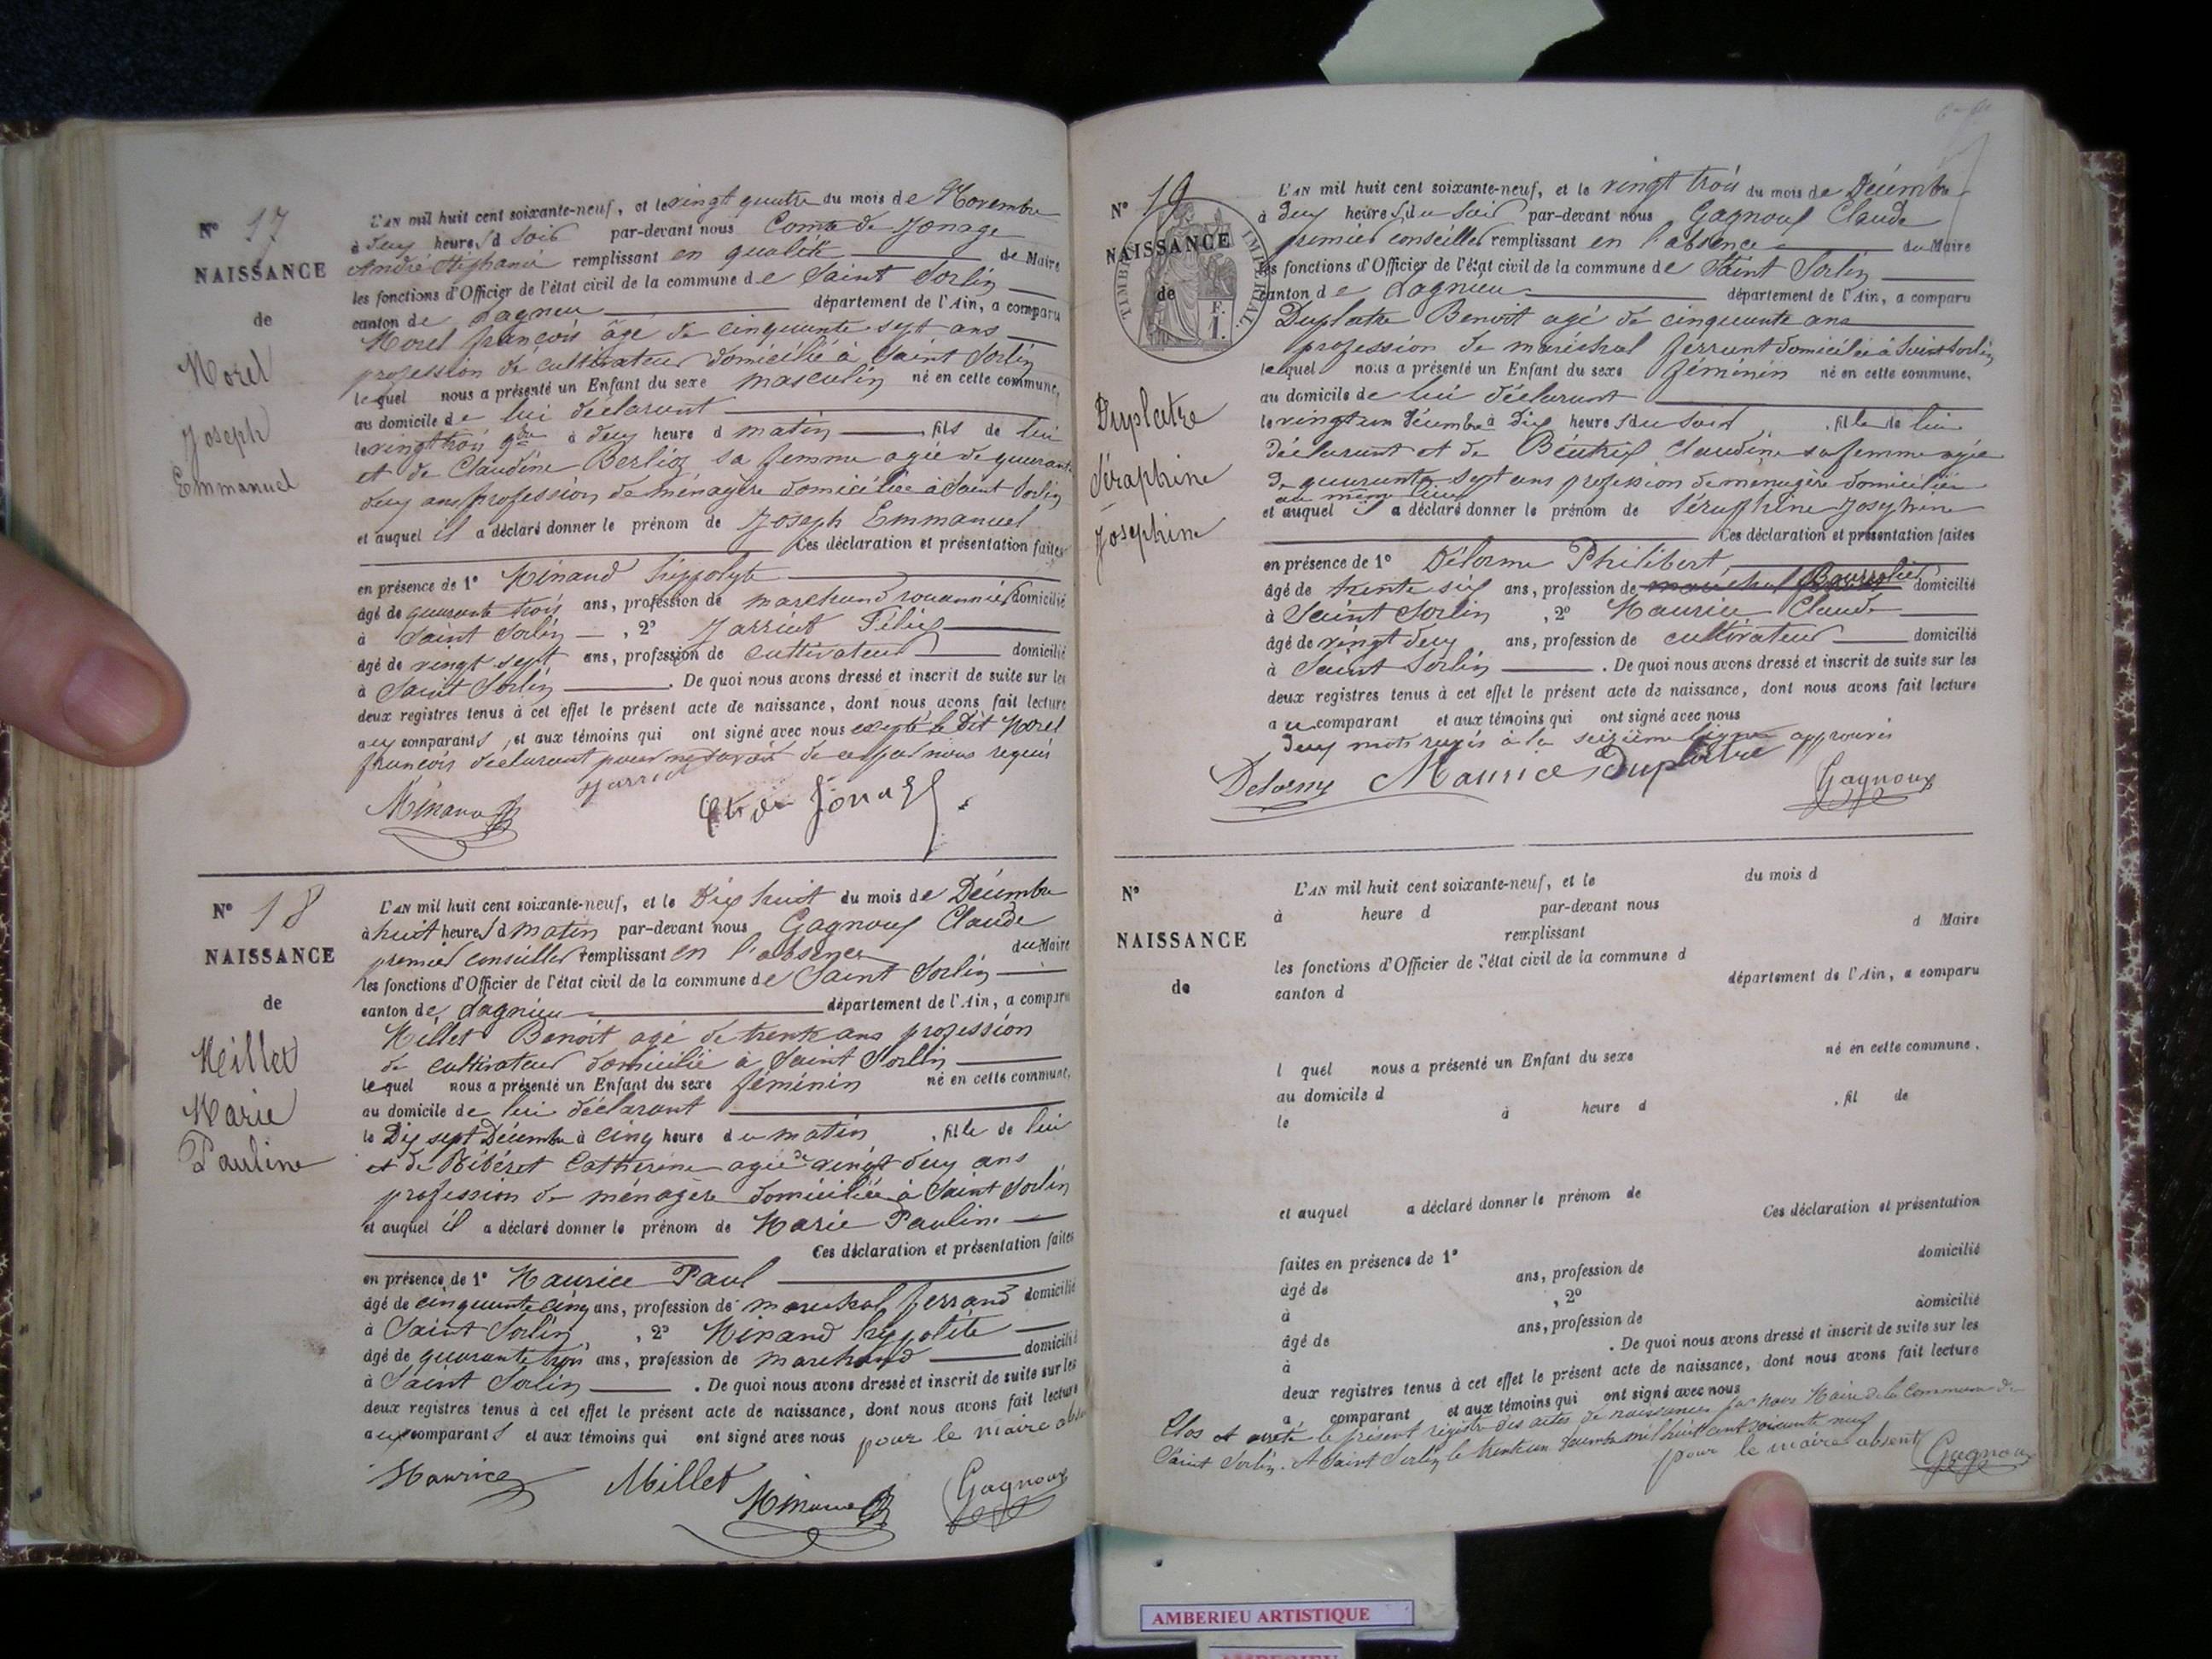 Nº 17
NAISSANCE
de
Morel
Joseph
Emmanuel
L'AN mil huit cent soixante-neuf, et le vingt quatre du mois de Novembre
à deux heures d soir par-devant nous Comte de Jonage
André Stéphanie remplissant en qualité de Maire
les fonctions d'Officier de l'état civil de la commune de Saint Sorlin
canton de Lagnieu département de l'Ain, a comparu
Morel françois âgé de cinquante sept ans
profession de cultivateur domicilié à Saint Sorlin
lequel nous a présenté un Enfant du sexe masculin né en cette commune,
au domicile de lui déclarant
le vingt trois 9bre à deux heure d matin fils de lui
et de Claudine Berlioz sa femme agée de quarante
deux ans profession de ménagère domiciliée à Saint Sorlin
et auquel il a déclaré donner le prénom de Joseph Emmanuel
Ces déclaration et présentation faites
en présence de 1º Minand hippolyte
âgé de quarante trois ans, profession de marchand rouannier domicilié
à Saint Sorlin , 2º Jarrut Félix
âgé de vingt sept ans, profession de cultivateur domicilié
à Saint Sorlin . De quoi nous avons dressé et inscrit de suite sur les
deux registres tenus à cet effet le présent acte de naissance, dont nous avons fait lecture
aux comparants, et aux témoins qui ont signé avec nous excepté le dit Morel
françois déclarant pour ne savoir de ce par nous requis
Minand
Cte de Jonage
Nº 18
NAISSANCE
de
Millet
Marie
Pauline
L'AN mil huit cent soixante-neuf, et le Dix huit du mois de Décembre
à huit heures d matin par-devant nous Gagnoux Claude
premier conseiller remplissant en l'absence du Maire
les fonctions d'Officier de l'état civil de la commune de Saint Sorlin
canton de Lagnieu département de l'Ain, a comparu
Millet Benoit agé de trente ans profession
de cultivateur domicilié à Saint Sorlin
lequel nous a présenté un Enfant du sexe féminin né en cette commune,
au domicile de lui déclarant
le Dix sept Décembre à cinq heure du matin , fille de lui
et de Bibéret Catherine agée de vingt deux ans
profession de ménagère domiciliée à Saint Sorlin
et auquel il a déclaré donner le prénom de Marie Pauline
Ces déclaration et présentation faites
en présence de 1º Maurice Paul
âgé de cinquante cinq ans, profession de maréchal ferrand domicilié
à Saint Sorlin , 2º Minand hyppolite
âgé de quarante trois ans, profession de marchand domicilié
à Saint Sorlin . De quoi nous avons dressé et inscrit de suite sur les
deux registres tenus à cet effet le présent acte de naissance, dont nous avons fait lecture
aux comparants et aux témoins qui ont signé avec nous pour le maire absent
Maurice Millet Minand Gagnoux
Nº 19
NAISSANCE
de
TIMBRE IMPERIAL
F.
1.
Duplatre
Séraphine
Josephine
L'AN mil huit cent soixante-neuf, et le vingt trois du mois de Décembre
à deux heures du soir par-devant nous Gagnoux Claude
premier conseiller remplissant en l'absence du Maire
les fonctions d'Officier de l'état civil de la commune de Saint Sorlin
canton de Lagnieu département de l'Ain, a comparu
Duplatre Benoit agé de cinquante ans
profession de maréchal ferrant domicilié à Saint Sorlin
lequel nous a présenté un Enfant du sexe féminin né en cette commune,
au domicile de lui déclarant
le vingt un Décembre à Dix heures du soir , fille de lui
déclarant et de Béatrix Claudine sa femme agée
de quarante sept ans profession de ménagère domiciliée
au même lieu
et auquel il a déclaré donner le prénom de Séraphine Josephine
Ces déclaration et présentation faites
en présence de 1º Délorme Philibert
âgé de trente six ans, profession de Bourrelier domicilié
à Saint Sorlin , 2º Maurice Claude
âgé de vingt deux ans, profession de cultivateur domicilié
à Saint Sorlin . De quoi nous avons dressé et inscrit de suite sur les
deux registres tenus à cet effet le présent acte de naissance, dont nous avons fait lecture
au comparant et aux témoins qui ont signé avec nous
deux mots rayés à la seizième ligne approuvés
Delorme Maurice Duplatre Gagnoux
Nº
NAISSANCE
de
L'AN mil huit cent soixante-neuf, et le du mois d
à heure d par-devant nous
remplissant d Maire
les fonctions d'Officier de l'état civil de la commune d
canton d département de l'Ain, a comparu
l quel nous a présenté un Enfant du sexe né en cette commune,
au domicile d
le à heure d , fil de
et auquel a déclaré donner le prénom de
Ces déclaration et présentation
faites en présence de 1º
âgé de ans, profession de domicilié
à , 2º
âgé de ans, profession de domicilié
à . De quoi nous avons dressé et inscrit de suite sur les
deux registres tenus à cet effet le présent acte de naissance, dont nous avons fait lecture
a comparant et aux témoins qui ont signé avec nous
Clos et arreté le présent registre des actes de naissances par nous Maire de la Commune de
Saint Sorlin. A Saint Sorlin le trente un Décembre mil huit cent soixante neuf
pour le maire absent Gagnoux
AMBERIEU ARTISTIQUE
AMBERIEU